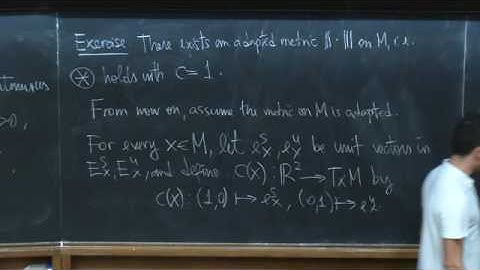 Exercise There exists an adapted metric ||·||| on M, i.e.
(*) holds with C=1.
From now on, assume the metric on M is adapted.
For every x∈M, let e^s_x, e^u_x be unit vectors in
E^s_x, E^u_x, and define C(x): ℝ² → T_xM by
C(x): (1,0) ↦ e^s_x, (0,1) ↦ e^u_x
>0,